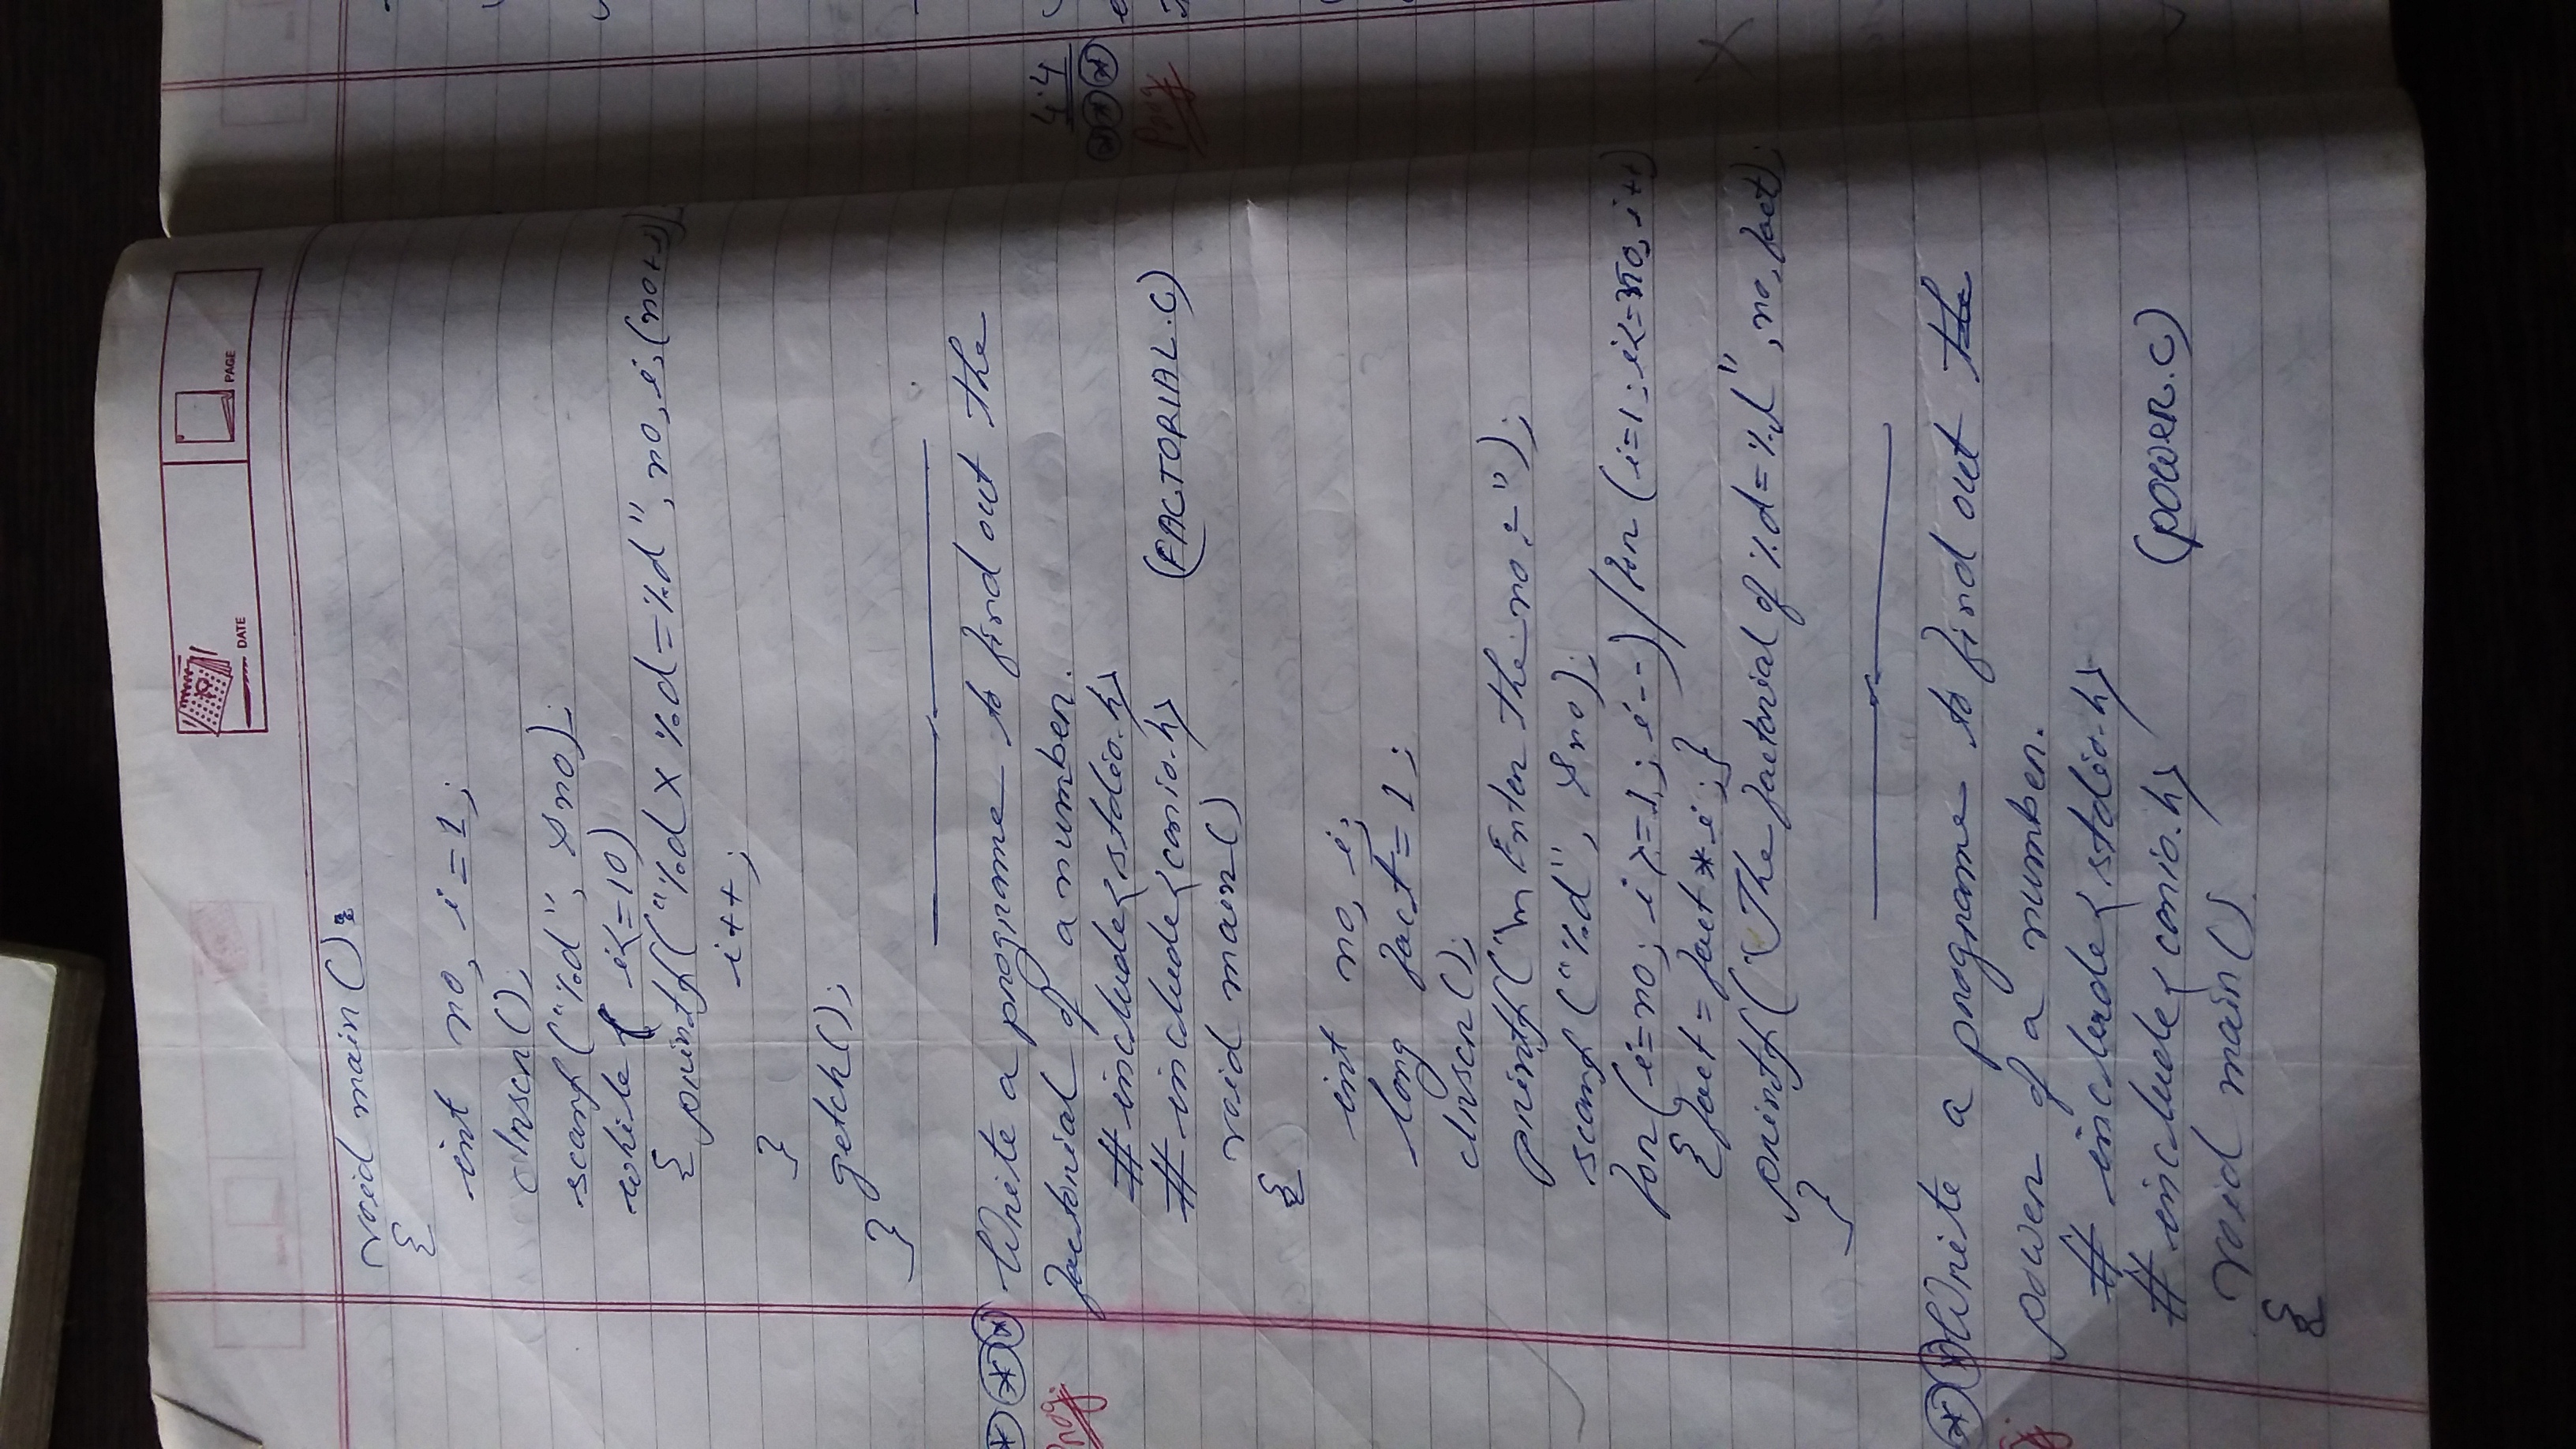 PAGE
DATE
void main()
{
int no, i=1;
clrscr();
scanf("%d", &no);
while( i<=10)
{ printf("%d x %d=%d", no, i, (no*i));
i++;
}
getch();
}
Write a programe to find out the
factorial of a number.
#include<stdio.h>
#include<conio.h> (FACTORIAL.C)
void main()
{
int no, i;
long fact=1;
clrscr();
printf("\n Enter the no:-");
scanf("%d", &no);
for(i=no; i>=1; i--)/for(i=1; i<=no; i++)
{fact=fact*i;}
printf("The factorial of %d=%d", no, fact);
}
Write a programe to find out the
power of a number.
#include<stdio.h>
#include<conio.h> (POWER.C)
void main()
{
4.4
Prog